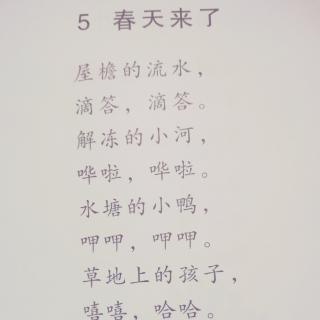 5 春天来了
屋檐的流水，
滴答，滴答。
解冻的小河，
哗啦，哗啦。
水塘的小鸭，
呷呷，呷呷。
草地上的孩子，
嘻嘻，哈哈。